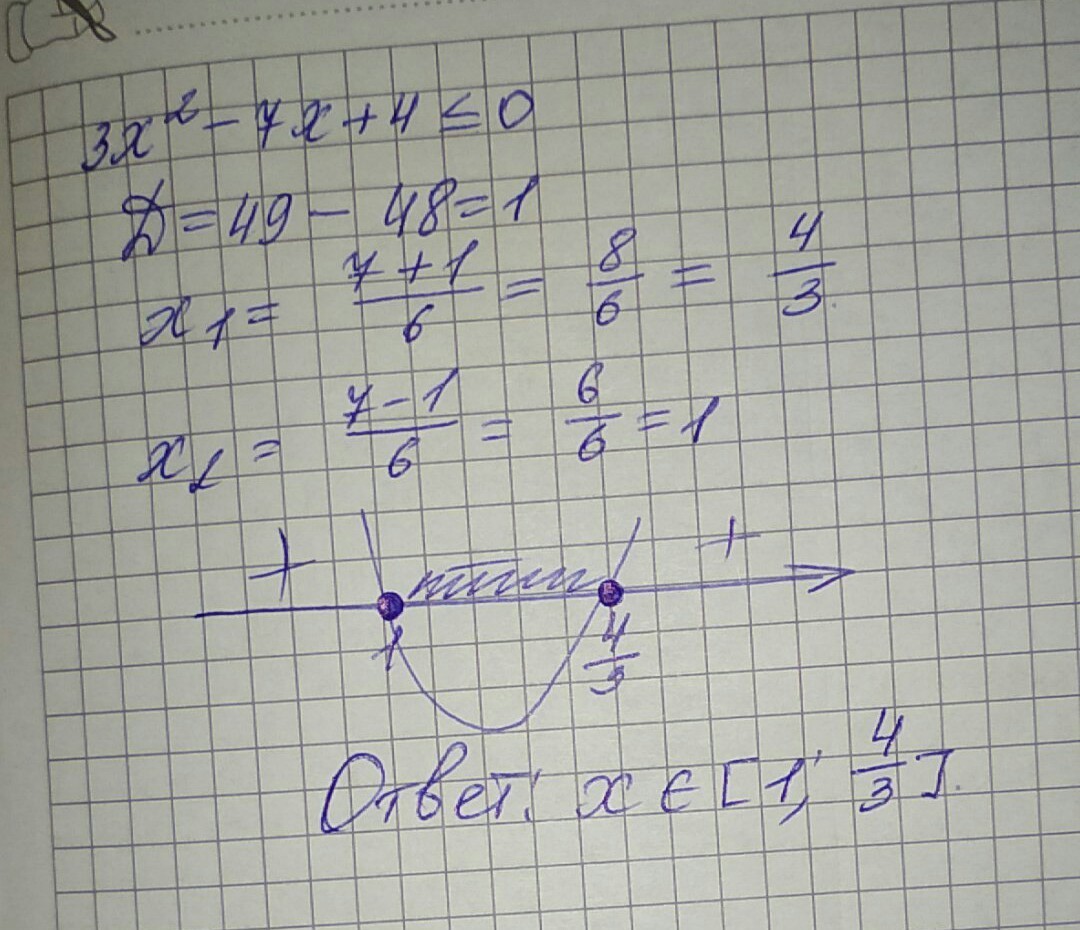 3x² - 7x + 4 ≤ 0
D = 49 - 48 = 1
x₁ = (7 + 1)/6 = 8/6 = 4/3
x₂ = (7 - 1)/6 = 6/6 = 1
+ +
1 4/3
Ответ: x ∈ [1; 4/3].